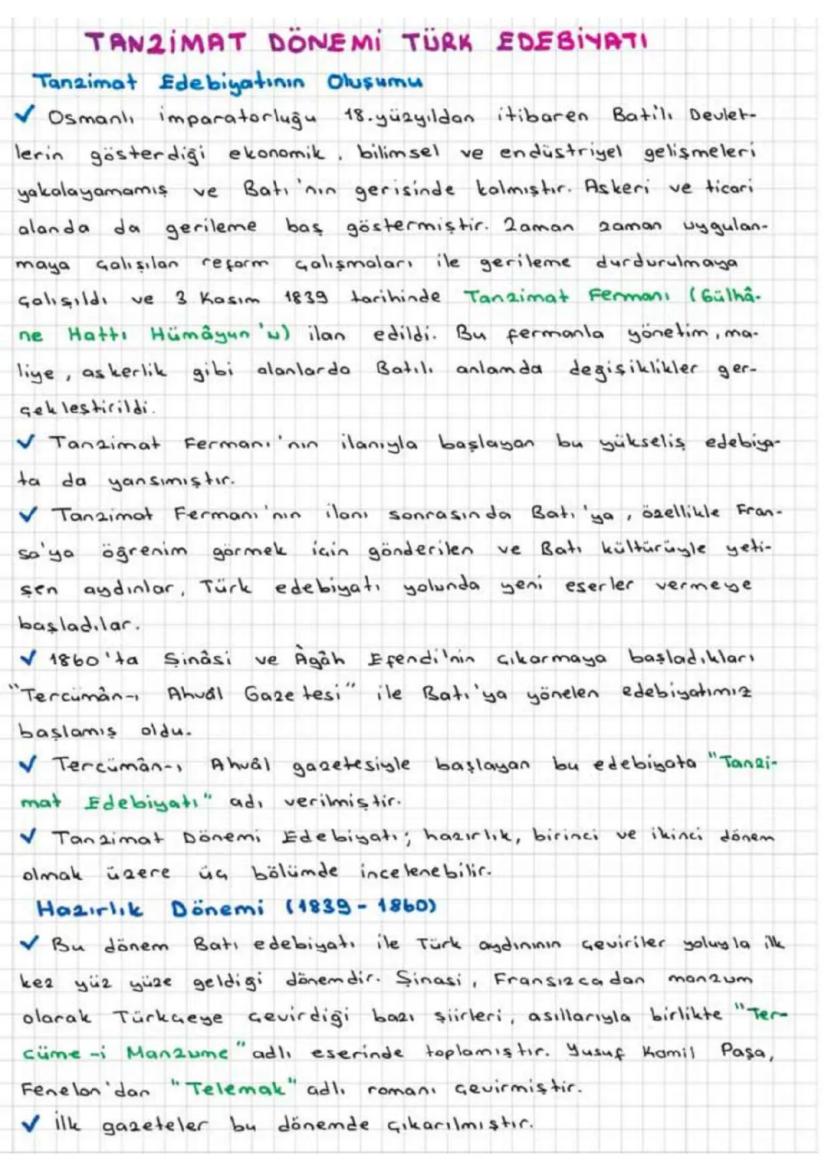 TANZİMAT DÖNEMİ TÜRK EDEBİYATI
Tanzimat Edebiyatının Oluşumu
✓ Osmanlı imparatorluğu 18.yüzyıldan itibaren Batılı Devlet-
lerin gösterdiği ekonomik, bilimsel ve endüstriyel gelişmeleri
yakalayamamış ve Batı'nın gerisinde kalmıştır. Askeri ve ticari
alanda da gerileme baş göstermiştir. Zaman zaman uygulan-
maya çalışılan reform çalışmaları ile gerileme durdurulmaya
çalışıldı ve 3 Kasım 1839 tarihinde Tanzimat Fermanı (Gülhâ-
ne Hattı Hümâyun'u) ilan edildi. Bu fermanla yönetim, ma-
liye, askerlik gibi alanlarda Batılı anlamda değişiklikler ger-
çekleştirildi.
✓ Tanzimat Fermanı'nın ilanıyla başlayan bu yükseliş edebiya-
ta da yansımıştır.
✓ Tanzimat Fermanı'nın ilanı sonrasında Batı'ya, özellikle Fran-
sa'ya öğrenim görmek için gönderilen ve Batı kültürüyle yeti-
şen aydınlar, Türk edebiyatı yolunda yeni eserler vermeye
başladılar.
✓ 1860'ta Şinâsi ve Âgâh Efendi'nin çıkarmaya başladıkları
"Tercümân-ı Ahvâl Gazetesi" ile Batı'ya yönelen edebiyatımız
başlamış oldu.
✓ Tercümân-ı Ahvâl gazetesiyle başlayan bu edebiyata "Tanzi-
mat Edebiyatı" adı verilmiştir.
✓ Tanzimat Dönemi Edebiyatı; hazırlık, birinci ve ikinci dönem
olmak üzere üç bölümde incelenebilir.
Hazırlık Dönemi (1839 - 1860)
✓ Bu dönem Batı edebiyatı ile Türk aydınının çeviriler yoluyla ilk
kez yüz yüze geldiği dönemdir. Şinasi, Fransızcadan manzum
olarak Türkçeye çevirdiği bazı şiirleri, asıllarıyla birlikte "Ter-
cüme-i Manzume" adlı eserinde toplamıştır. Yusuf Kamil Paşa,
Fenelon'dan "Telemak" adlı romanı çevirmiştir.
✓ İlk gazeteler bu dönemde çıkarılmıştır.